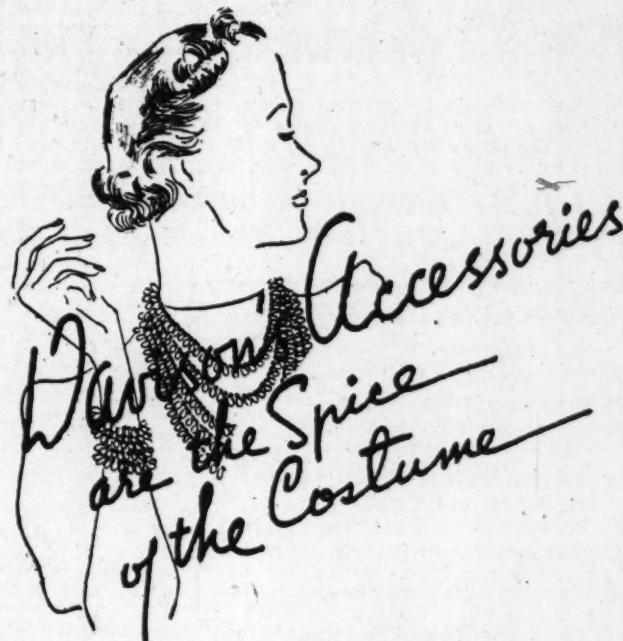 Davison's Accessories
are the Spice
of the Costume